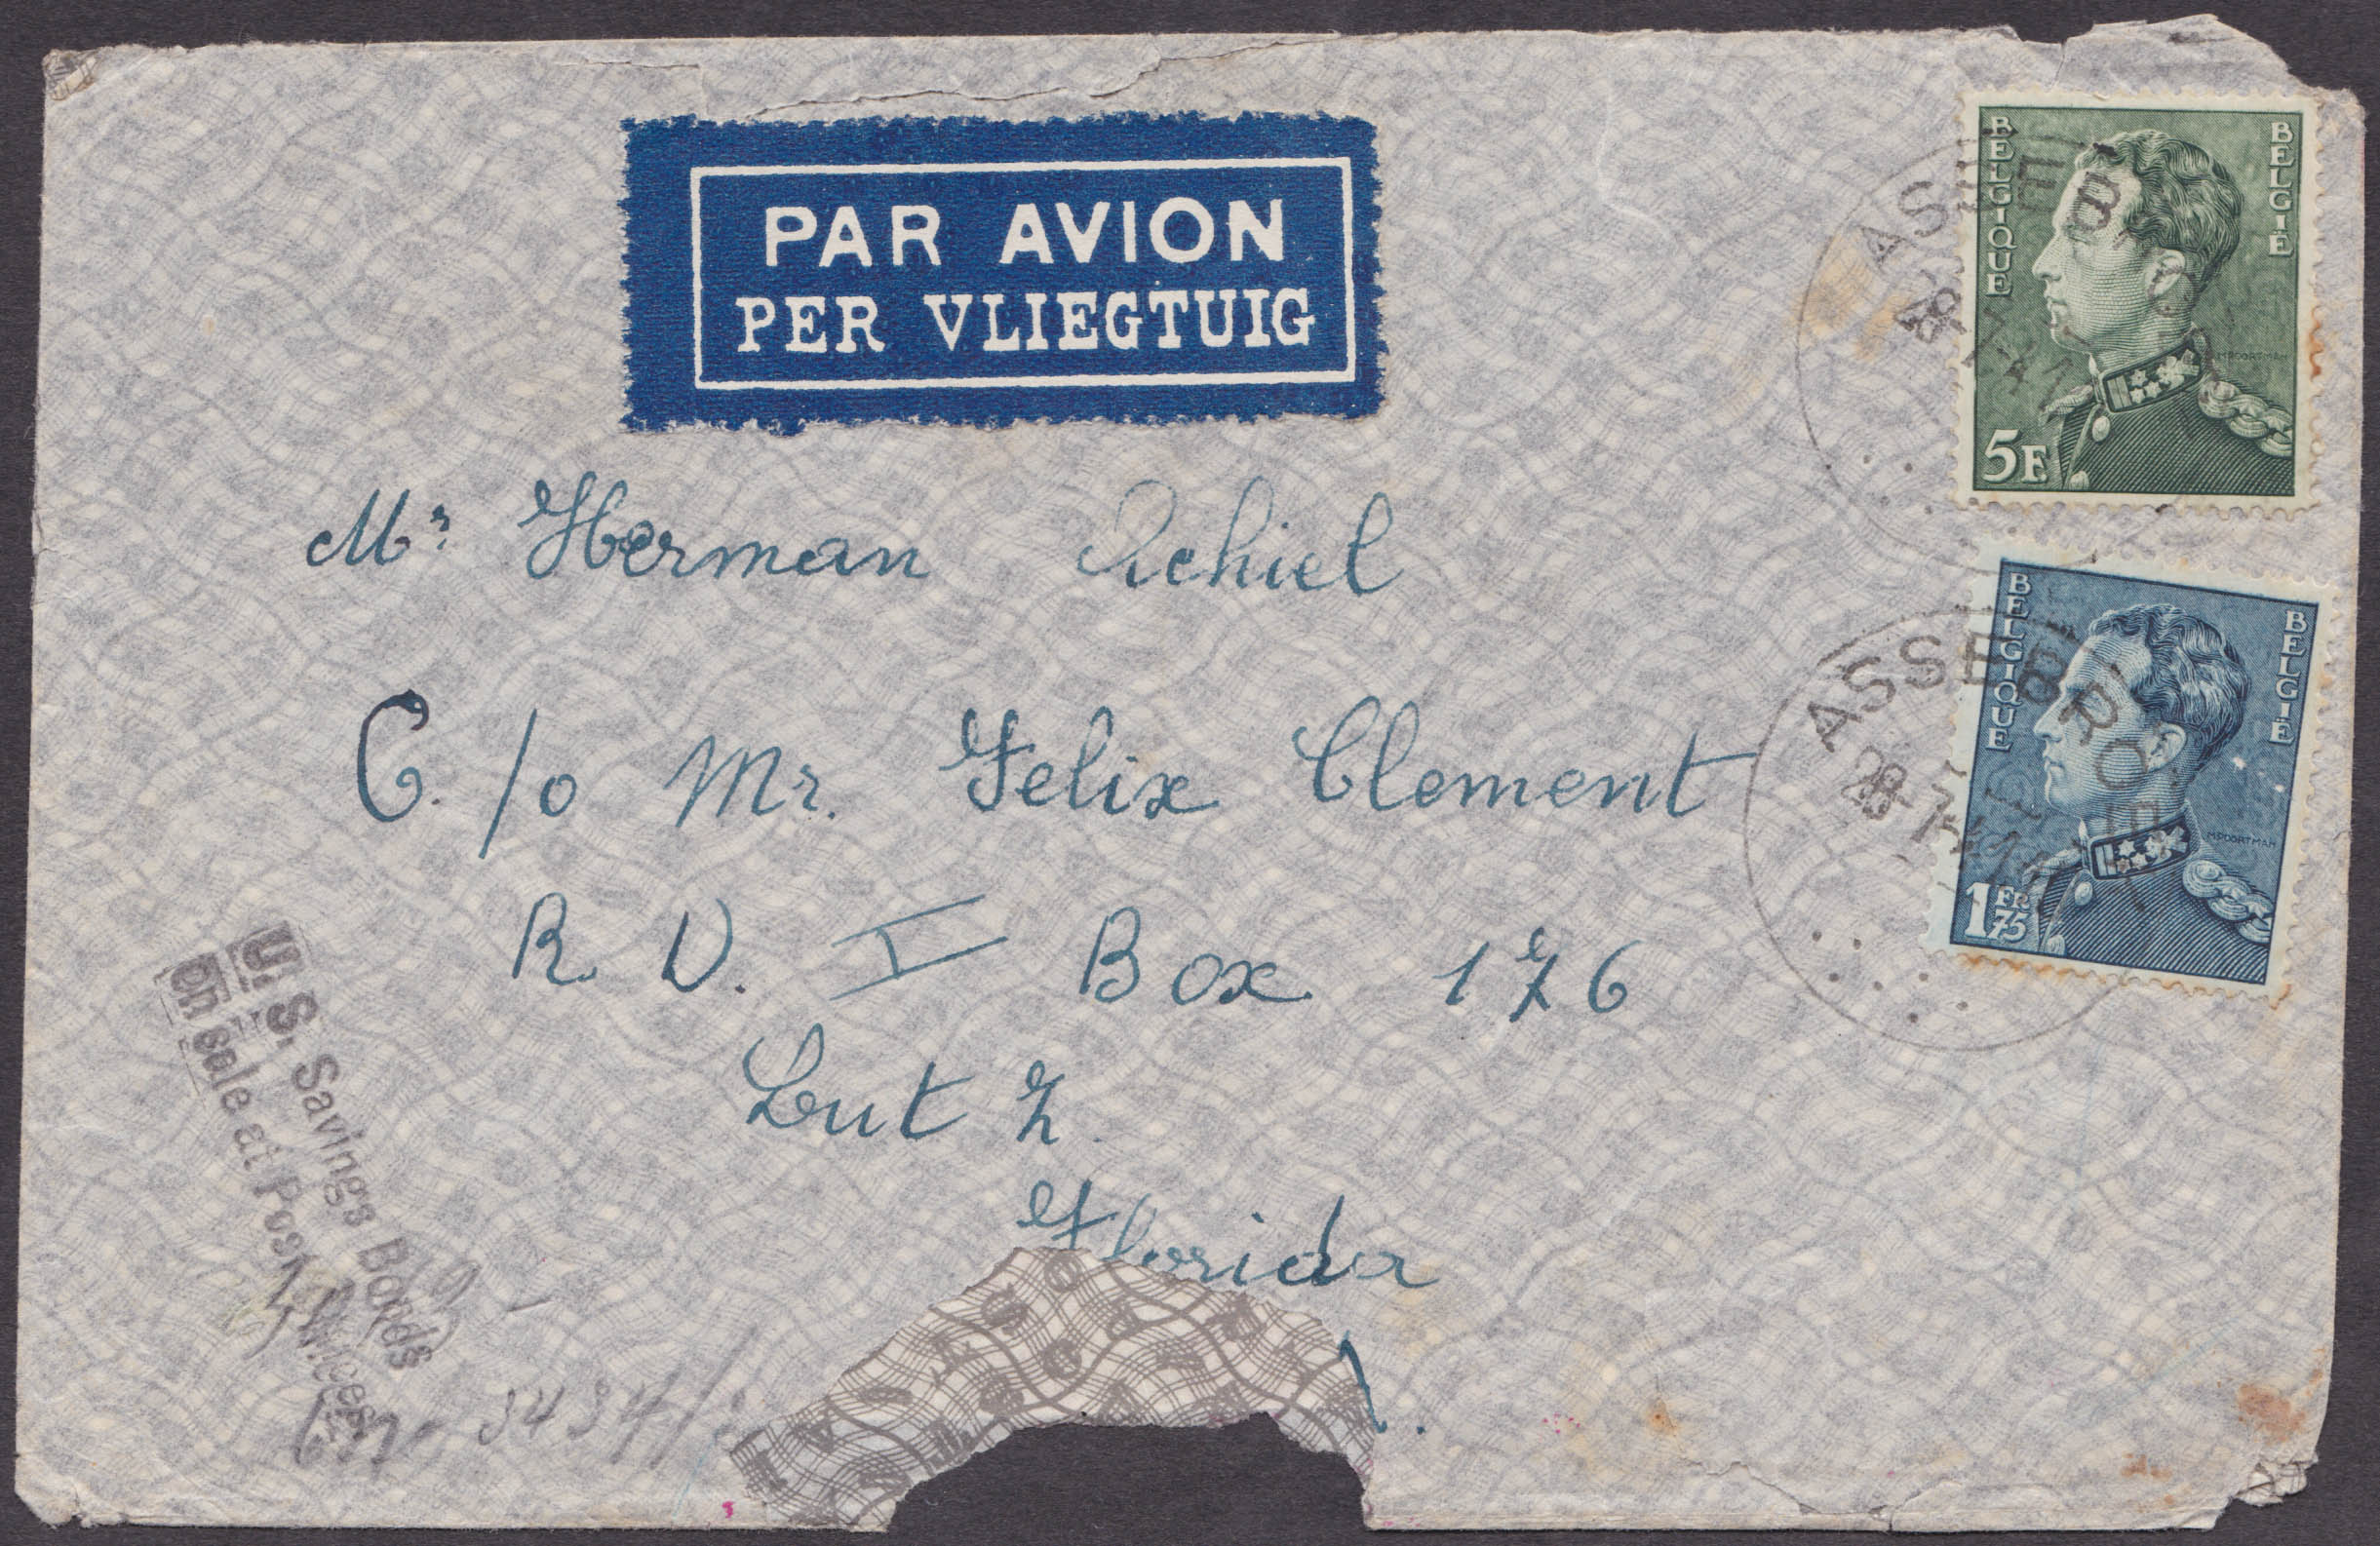 PAR AVION
PER VLIEGTUIG
BELGIQUE
BELGIË
5F
MPOORTMAN
ASSEBR
BELGIQUE
BELGIË
1FR75
MPOORTMAN
ASSEBROEK
28
Mr Herman Achiel
C. /o Mr. Felix Clement
R. D. I Box 176
Lutz.
Florida
U. S. Savings Bonds
on sale at Post Offices
3434/